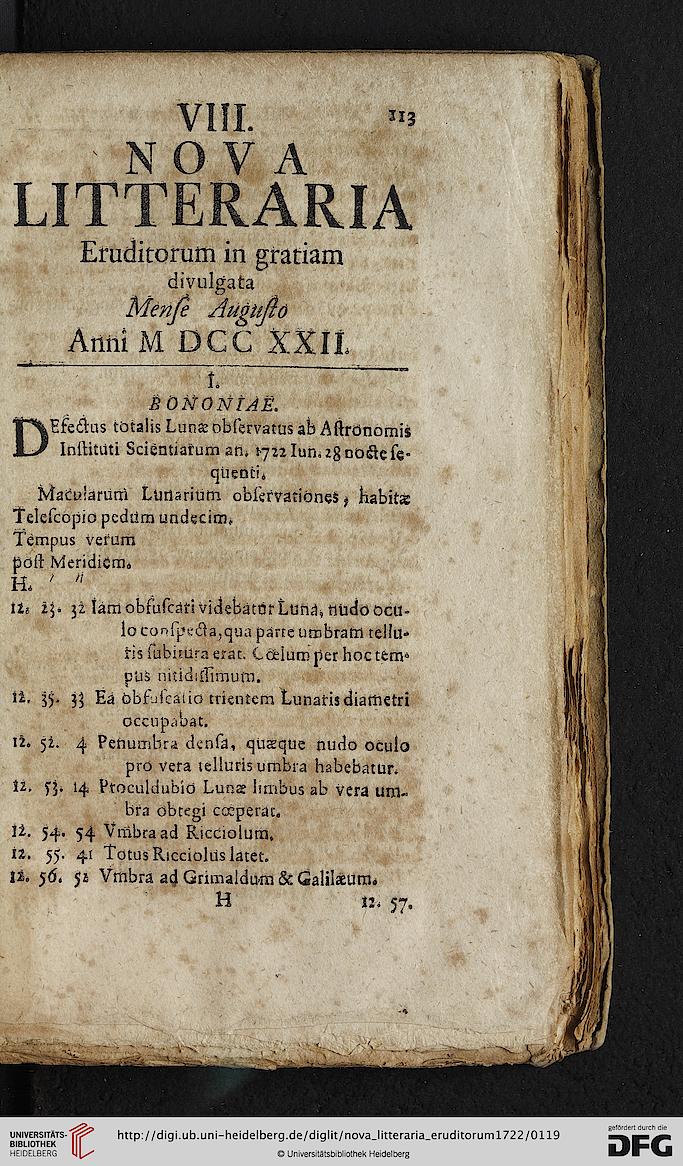 VIII. 113
NOVA
LITTERARIA
Eruditorum in gratiam
divulgata
Menſe Auguſto
Anni M DCC XXII.
I.
BONONIAE.
DEfectus totalis Lunæ obſervatus ab Aſtronomis
Inſtituti Scientiarum an. 1722 Iun. 28 nocte ſe-
quenti.
Macularum Lunarium obſervationes, habitæ
Teleſcopio pedum undecim.
Tempus verum
poſt Meridiem.
H. ′ ″
12. 23. 32 Iam obfuſcari videbatur Luna, nudo ocu-
lo conſpecta, qua parte umbram tellu-
ris ſubitura erat. Cœlum per hoc tem-
pus nitidiſſimum.
12. 35. 33 Ea obfuſcatio trientem Lunaris diametri
occupabat.
12. 52. 4 Penumbra denſa, quæque nudo oculo
pro vera telluris umbra habebatur.
12. 53. 14 Proculdubio Lunæ limbus ab vera um-
bra obtegi cœperat.
12. 54. 54 Vmbra ad Ricciolum.
12. 55. 41 Totus Ricciolus latet.
12. 56. 52 Vmbra ad Grimaldum & Galilæum.
H 12. 57.
UNIVERSITÄTS-
BIBLIOTHEK
HEIDELBERG
http://digi.ub.uni-heidelberg.de/diglit/nova_litteraria_eruditorum1722/0119
© Universitätsbibliothek Heidelberg
gefördert durch die
DFG